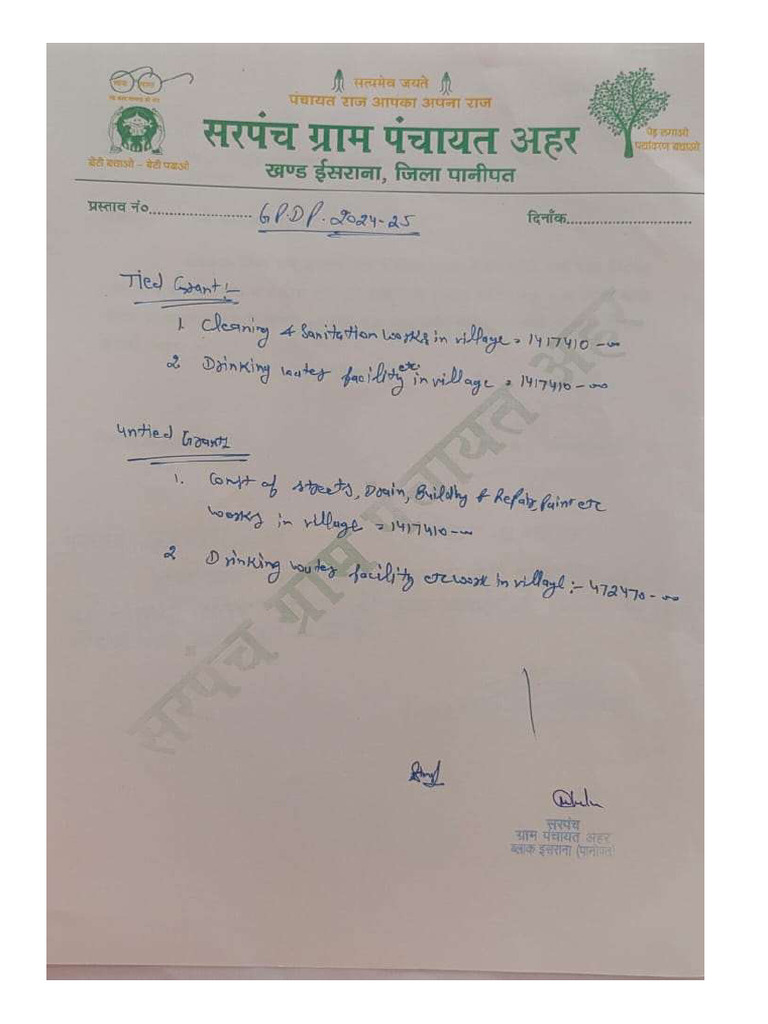 सत्यमेव जयते
पंचायत राज आपका अपना राज
सरपंच ग्राम पंचायत अहर
खण्ड ईसराना, जिला पानीपत
बेटी बचाओ – बेटी पढाओ
पेड़ लगाओ
पर्यावरण बचाओ
प्रस्ताव नं०.................... G.P.D.P. 2024-25 दिनाँक.........................
Tied Grant :-
1. Cleaning & Sanitation works in village = 1417410 -00
2. Drinking water facility etc in village = 1417410 -00
Untied Grant
1. Const of streets, Drain, Building & Repair, Paint etc
works in village = 1417410 -00
2 Drinking water facility etc work in village :- 472470 -00
सरपंच ग्राम पंचायत अहर
सरपंच
ग्राम पंचायत अहर
ब्लाक इसराना (पानीपत)